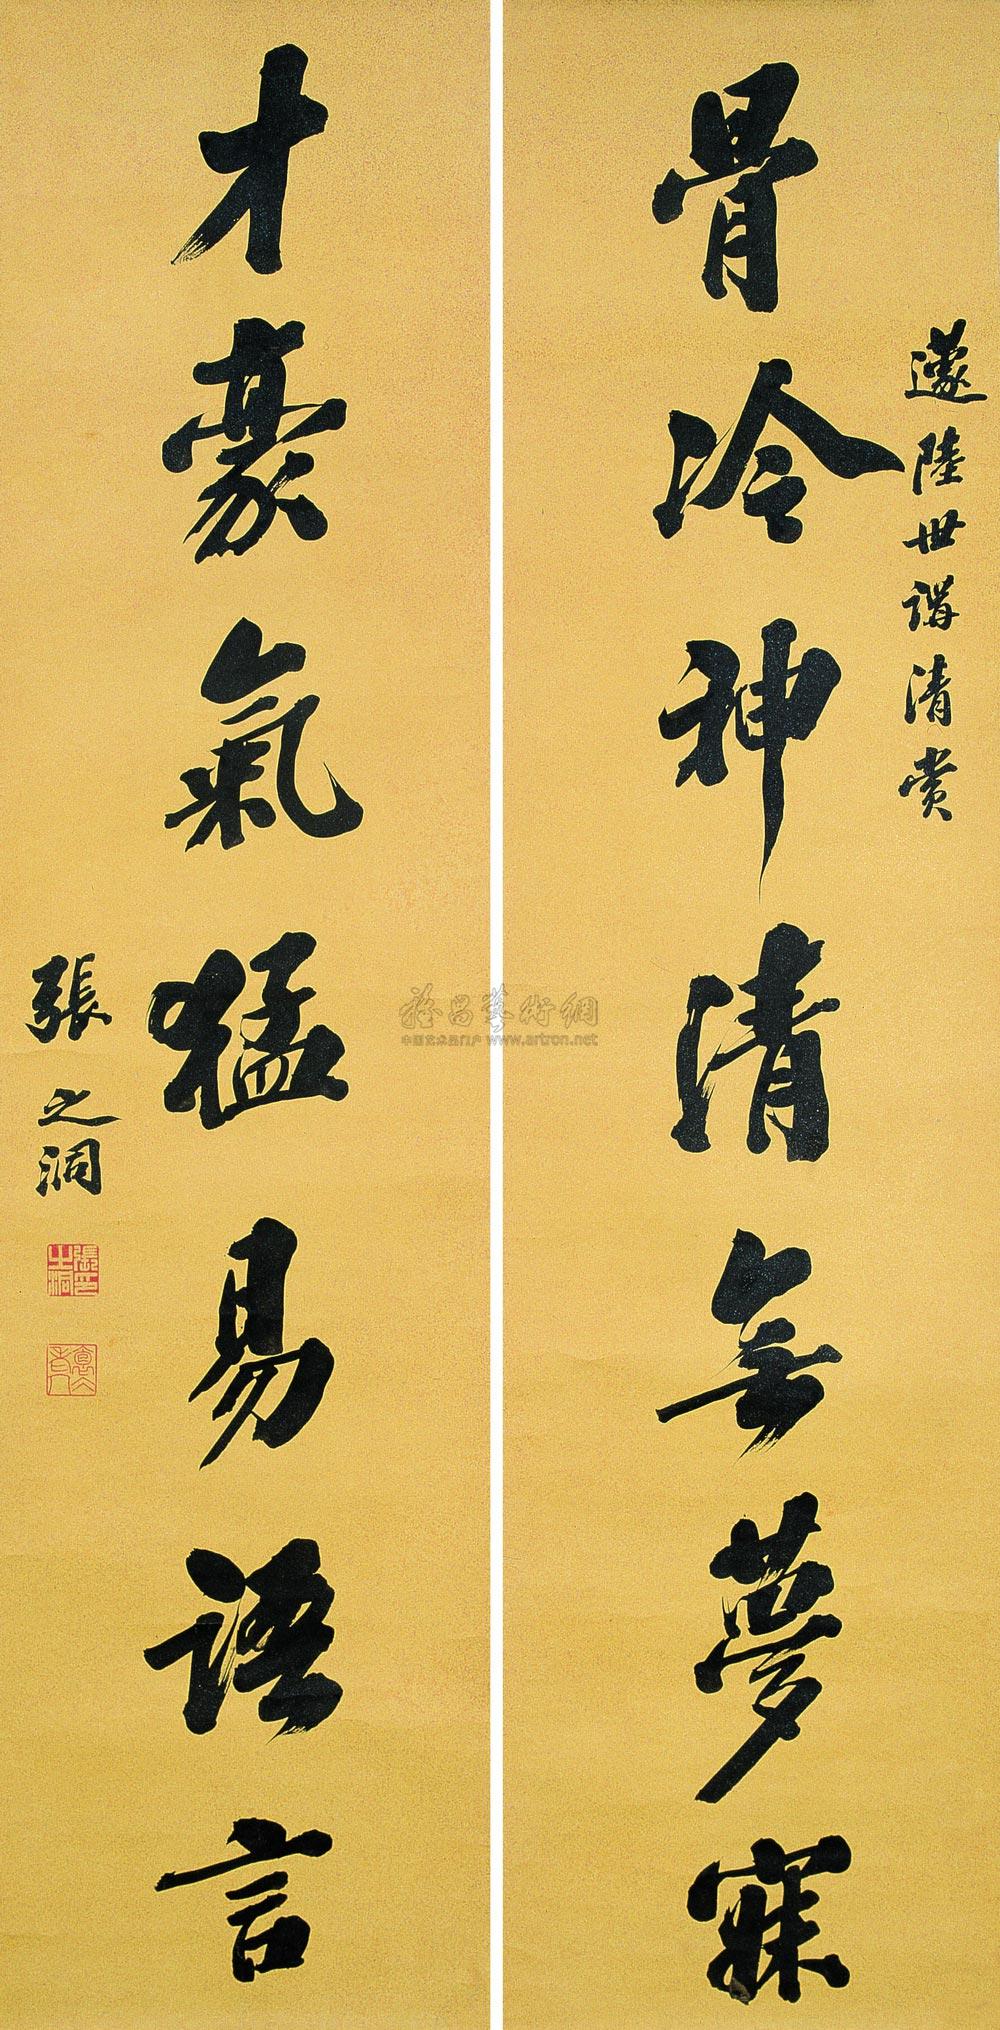 陸世講清賞
骨冷神清無夢寐
才豪氣猛易語言
張之洞
張印之洞
雅昌藝術網
中国艺术品门户 www.artron.net